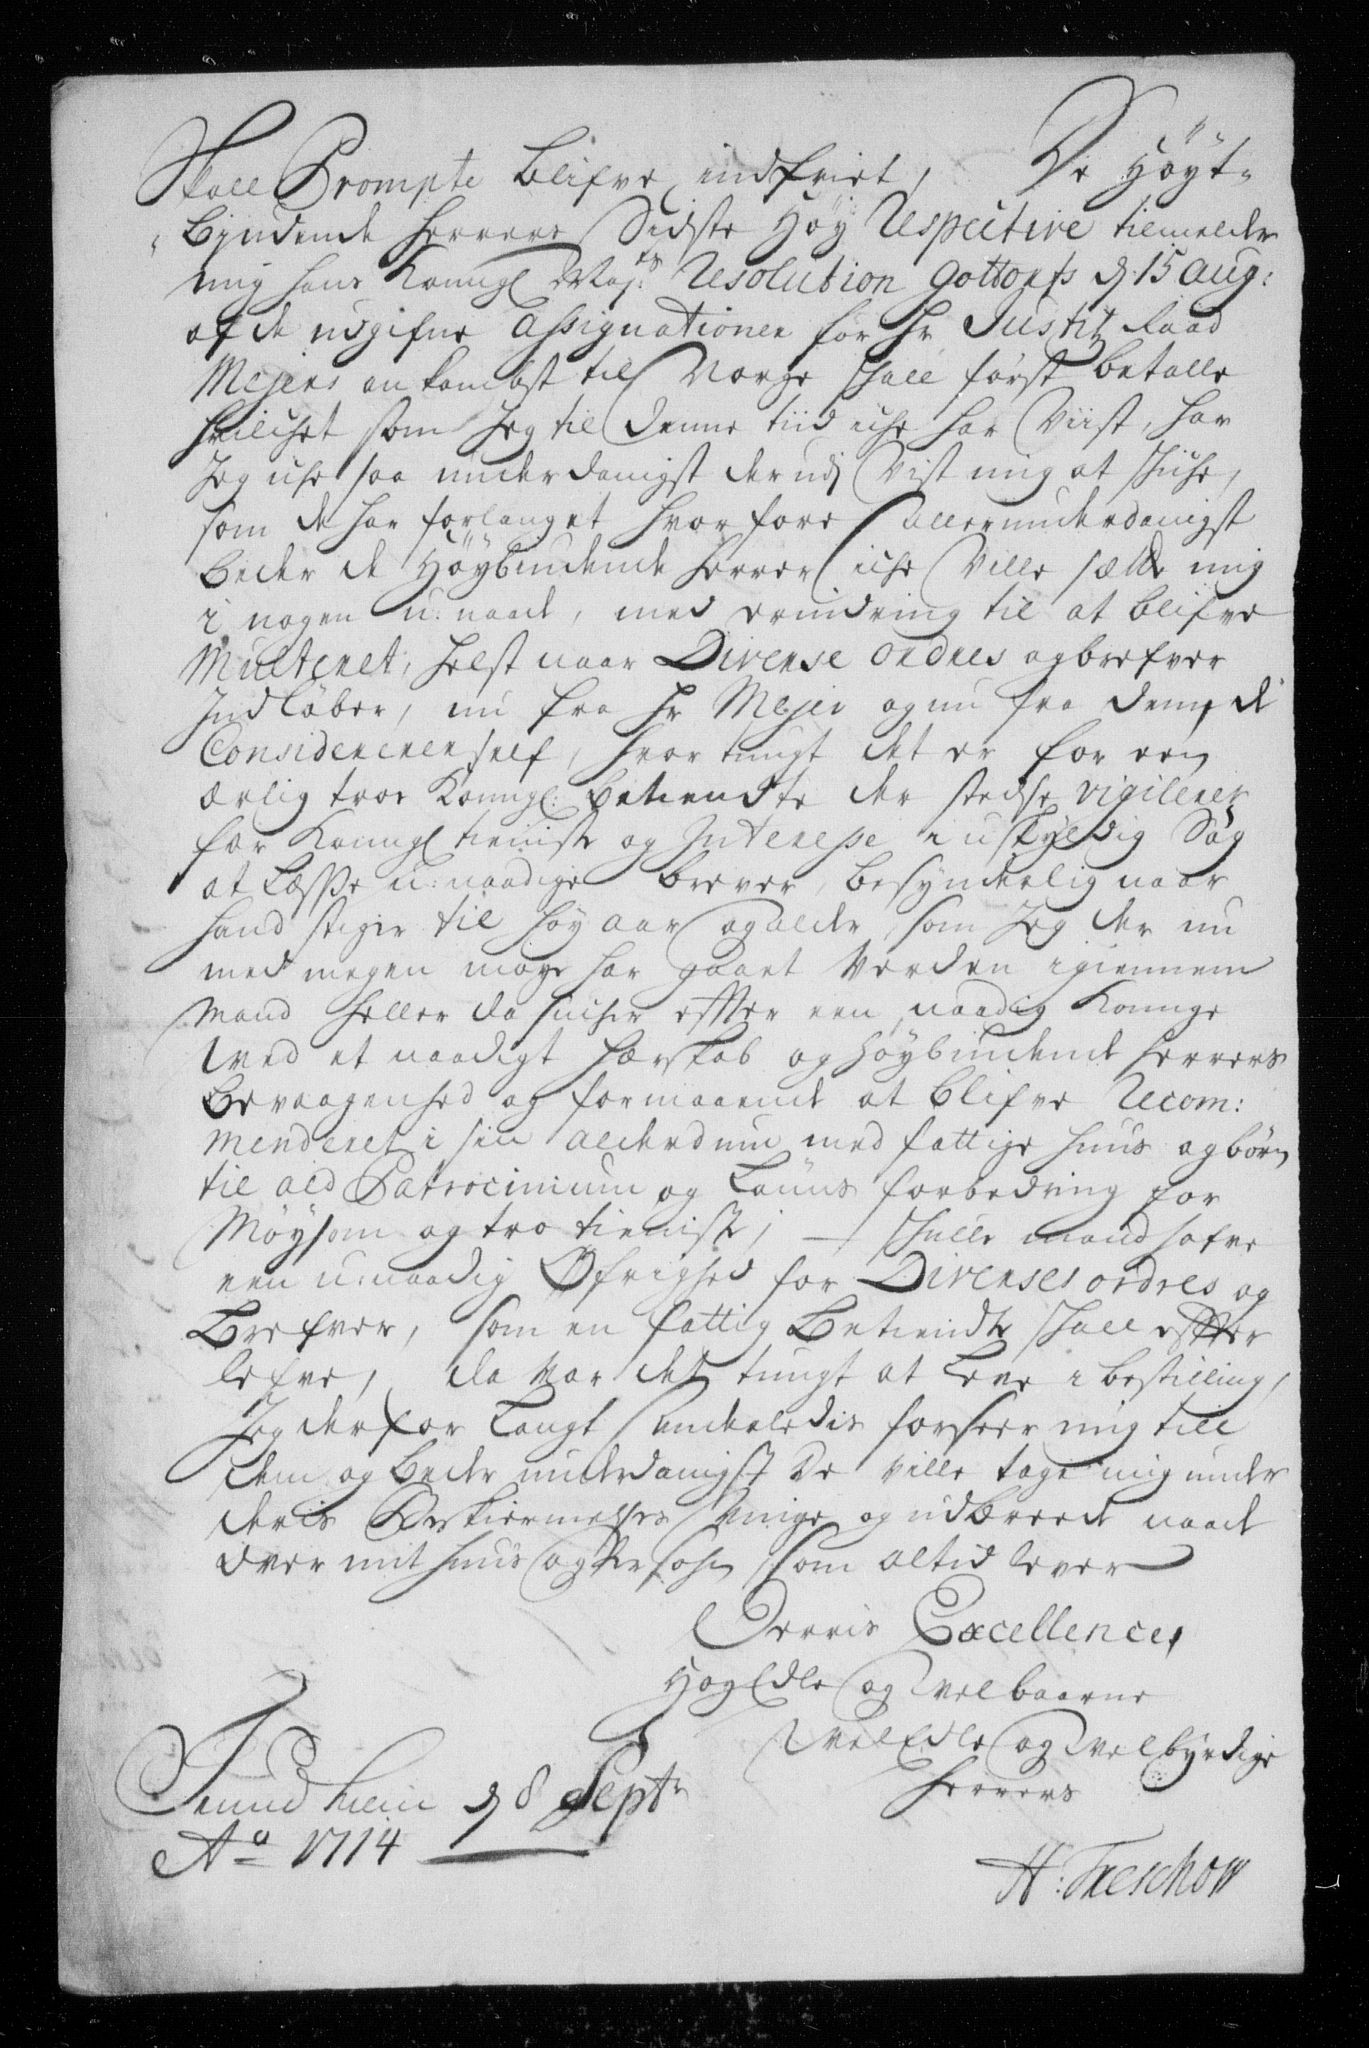 Skall Prompte blifve indfriet, De Höyt-
bÿndende herrers Sidste Höy Respective tilmelder
mig hans Kongl Maj:ts Resolution Gottorfs d 15 aug:
at de udgifne Assignationer for Hr Justitz Raad
Mejers ankombst til Norge skall först betalle
huilchet som Jeg til denne tiid iche har Viist, har
Jeg iche saa underdanigst derudj Vist mig at schiche,
som de har forlanget hvorfore allerunderdanigst
beder de Höybiudende herrer iche Ville sætte mig
i nogen u:naade, med erindring til at blifve
Multeret, helst naar Diverse ordres og brefver
Indlöber, nu fra Hr Mejer og nu fra dem, de
Considererer self, hvor tungt det er for een
ærlig troe Kongl: betiendte der stedse vigilerer
for Kongl tieniste og Interesse i uskyldig Sag
at læsse u:naadige brever, besynderlig naar
hand stiger til höy aar og alder, som Jeg der nu
med megen möye har gaaet Verden igiennem
mand heller da sucher effter een naadig Konge
ved et naadigt herskab og Höybiudende herrers
bevaagenhed og formaaende at blifve Recom:
menderet i sin alderdom med fattige huus og börn
til ald Patrocinium og Launs forbedring for
Möysom og tro tieniste; – skulle mand hafve
een u:naadig Öfrighed for Diverses ordres og
brefver, som en fattig betiendte skall effter
lefve, da var det tungt at leve i bestilling,
Jeg derfor langt anderledis forseer mig till
dem og beder underdanigst De ville tage mig under
deris Beskiermelses Vinge og udbreede naade
over mit huus og Persohn som altid lever
Derris Excellence,
HögEdle og Velbaarne
VelEdle og Velbyrdige
herrers
Trundhiem d 8 Septr
Ao 1714
H: Treschow